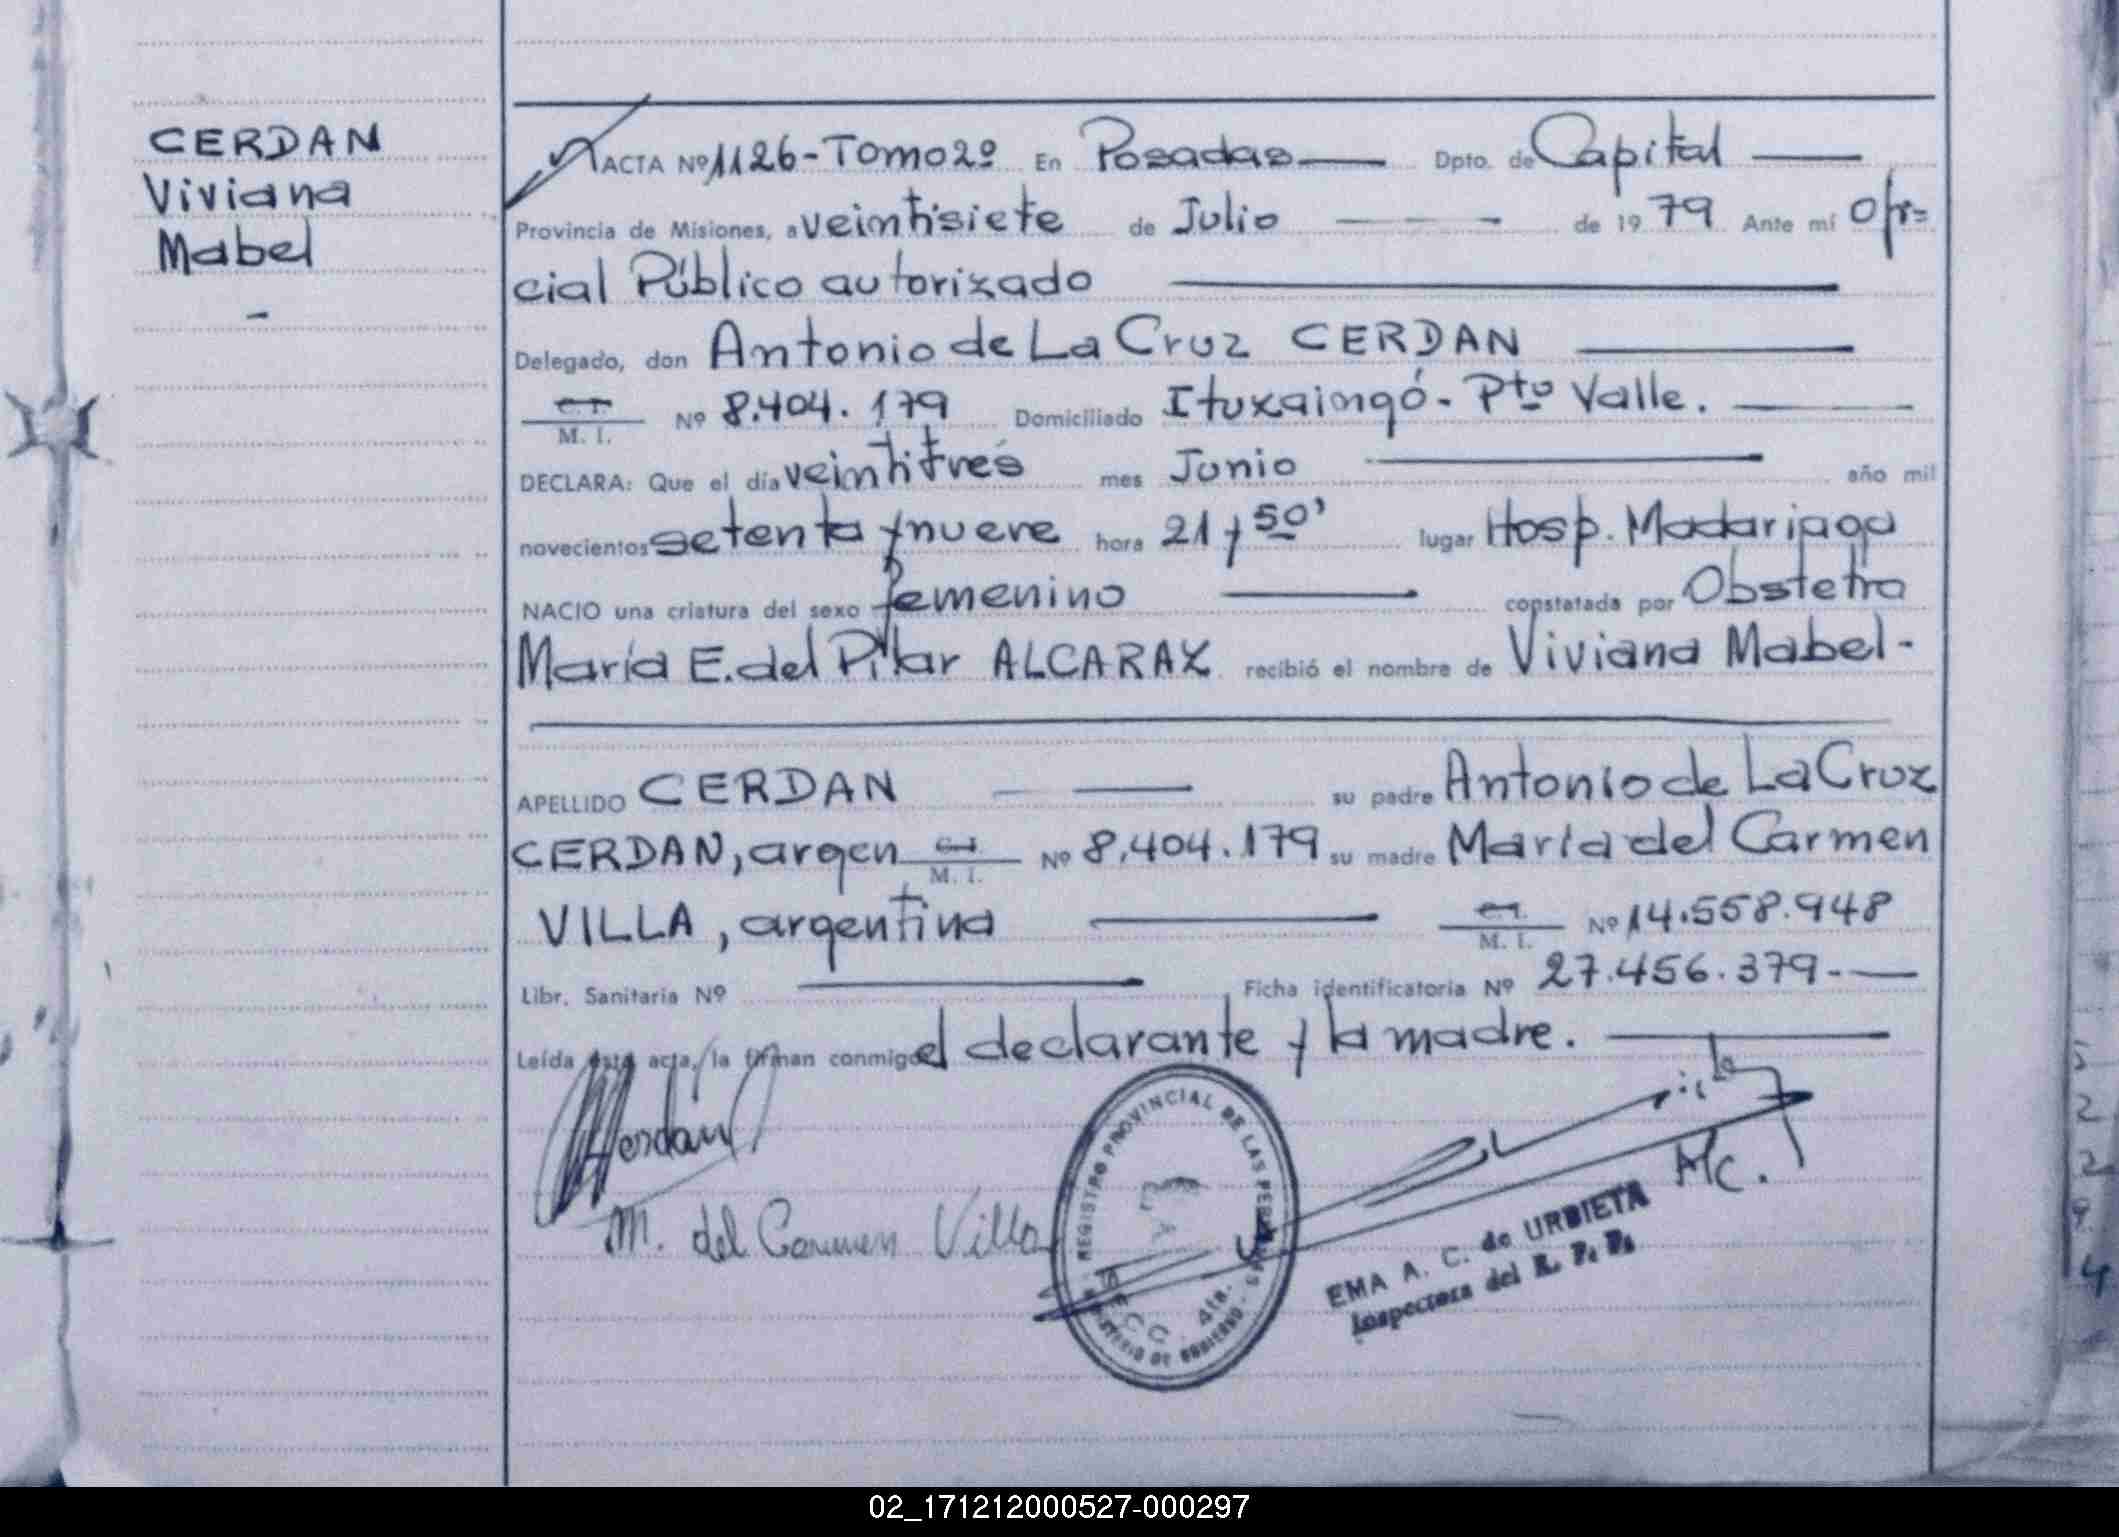 CERDAN
Viviana
Mabel
-
ACTA Nº 1126-Tomo 2º En Posadas Dpto. de Capital
Provincia de Misiones, a veintisiete de Julio de 1979 Ante mí Ofi=
cial Público autorizado
Delegado, don Antonio de La Cruz CERDAN
C. I.
M. I. Nº 8.404.179 Domiciliado Ituzaingó- Pto Valle.
DECLARA: Que el día veintitres mes Junio año mil
novecientos setenta y nueve hora 21 y 50' lugar Hosp. Madariaga
NACIO una criatura del sexo femenino constatada por Obstetra
María E. del Pilar ALCARAZ recibió el nombre de Viviana Mabel-
APELLIDO CERDAN su padre Antonio de La Cruz
CERDAN, argen C.I. M. I. Nº 8.404.179 su madre María del Carmen
VILLA, argentina C.I. M. I. Nº 14.558.948
Libr. Sanitaria Nº Ficha identificatoria Nº 27.456.379-
Leída esta acta, la firman conmigo el declarante y la madre.
Cerdan
M. del Carmen Villa
REGISTRO PROVINCIAL DE LAS PERSONAS
SECC. 4ta.
MINISTERIO DE GOBIERNO
EMA A. C. de URBIETA
Inspectora del R. P. P.
02_171212000527-000297